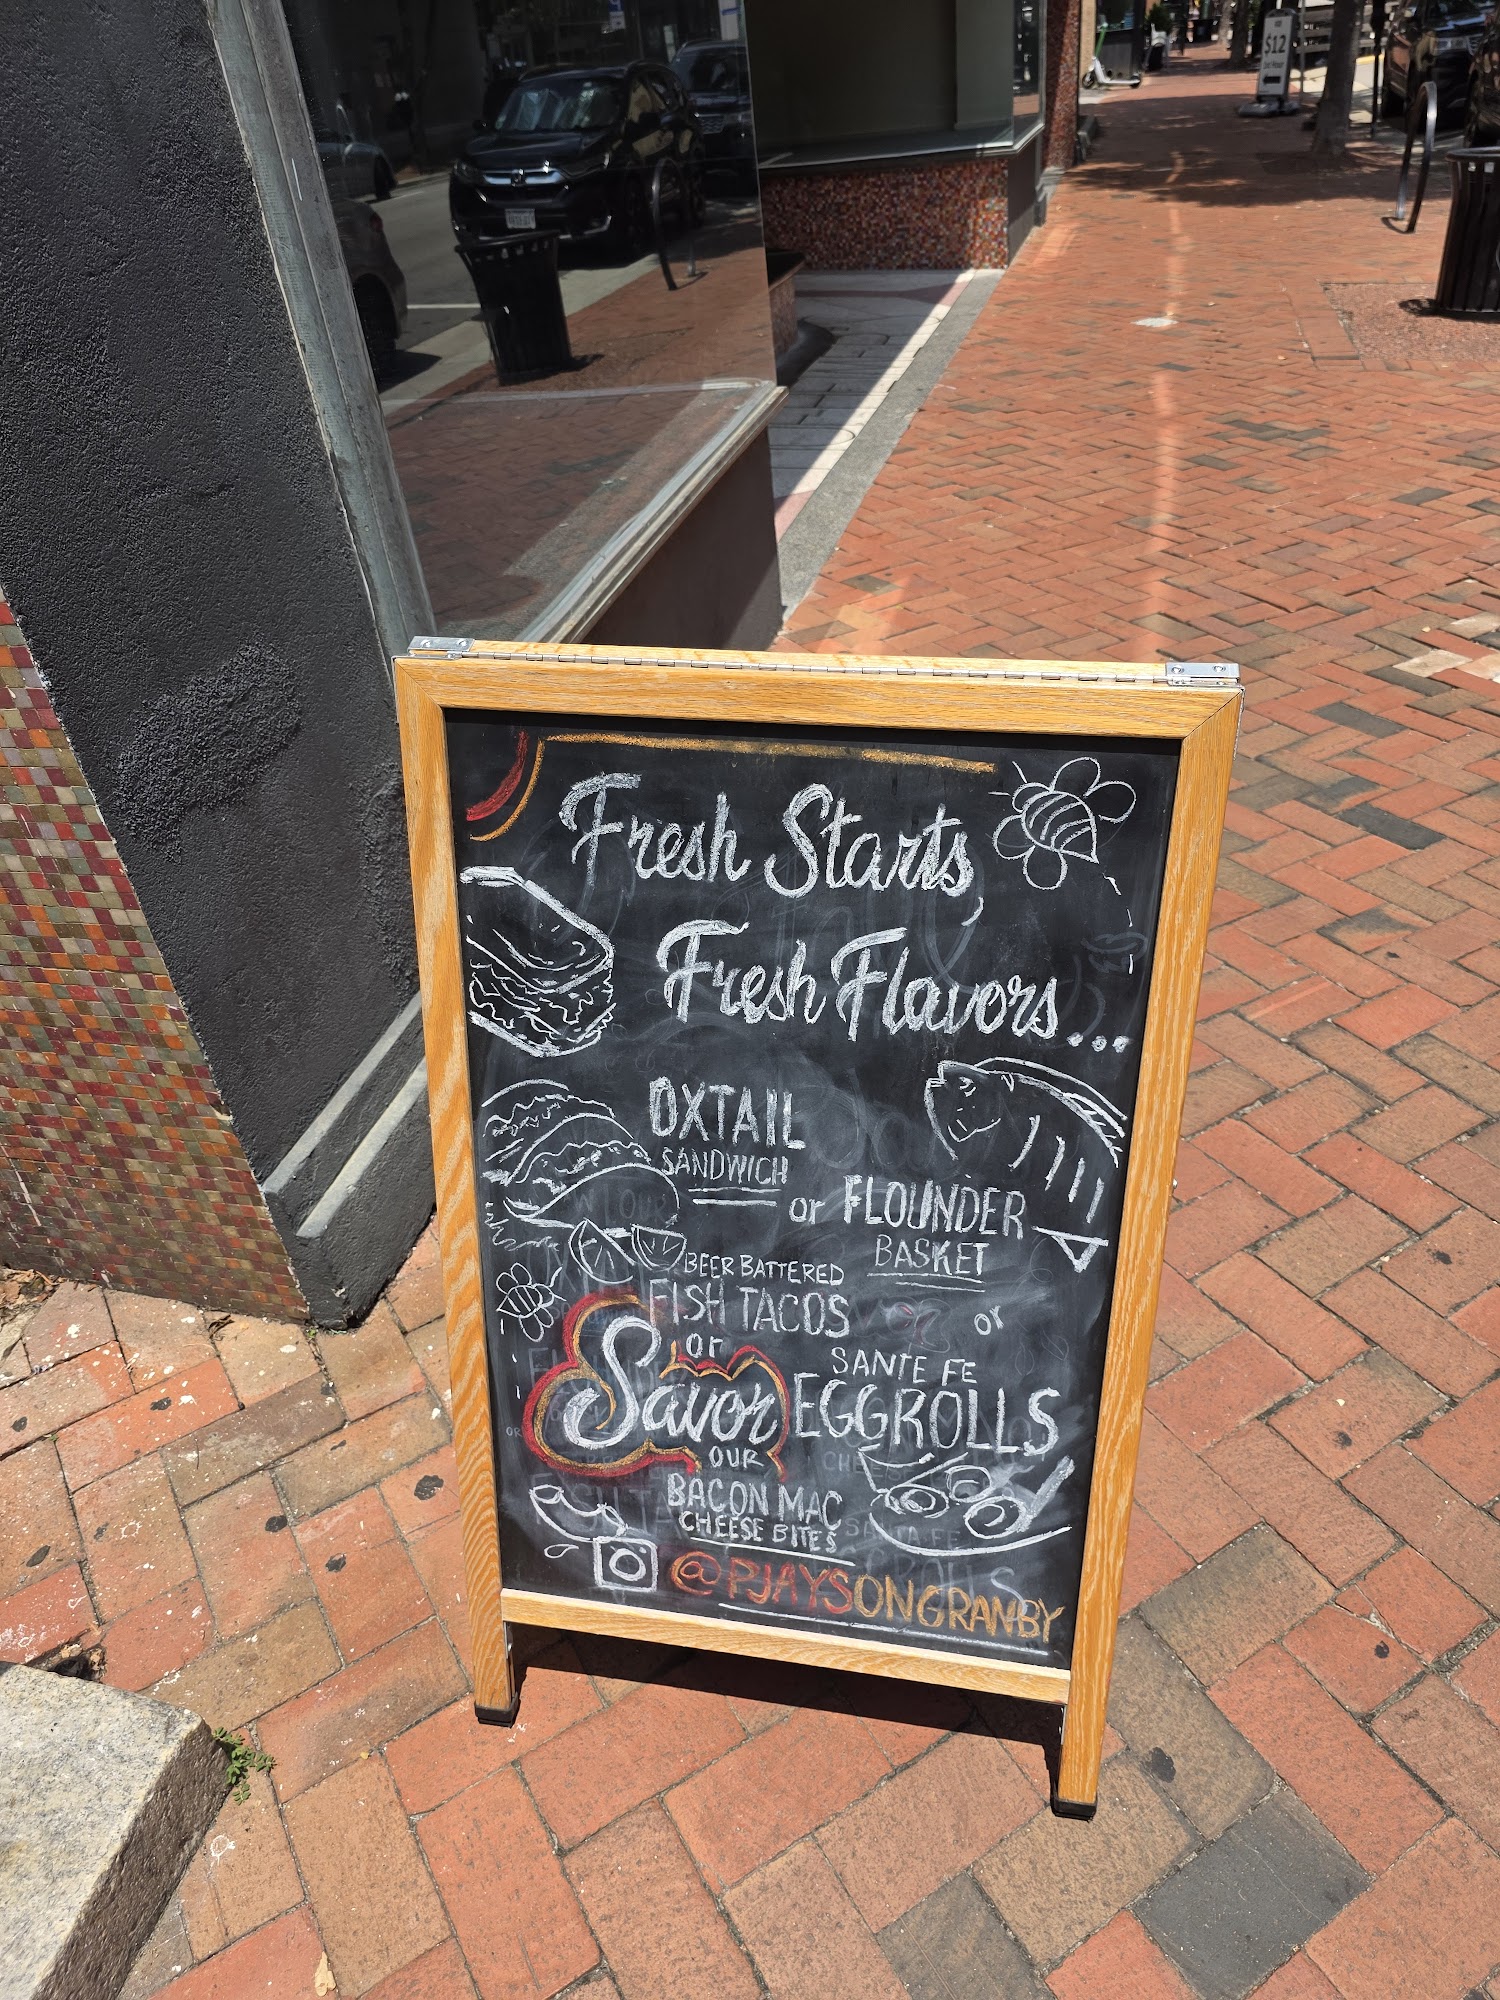 $12
Fresh Starts,
Fresh Flavors...
OXTAIL
SANDWICH
or FLOUNDER
BASKET
BEER BATTERED
FISH TACOS
or
or
SANTE FE
EGGROLLS
Savor
OUR
BACON MAC
CHEESE BITES
@PJAYSONGRANBY